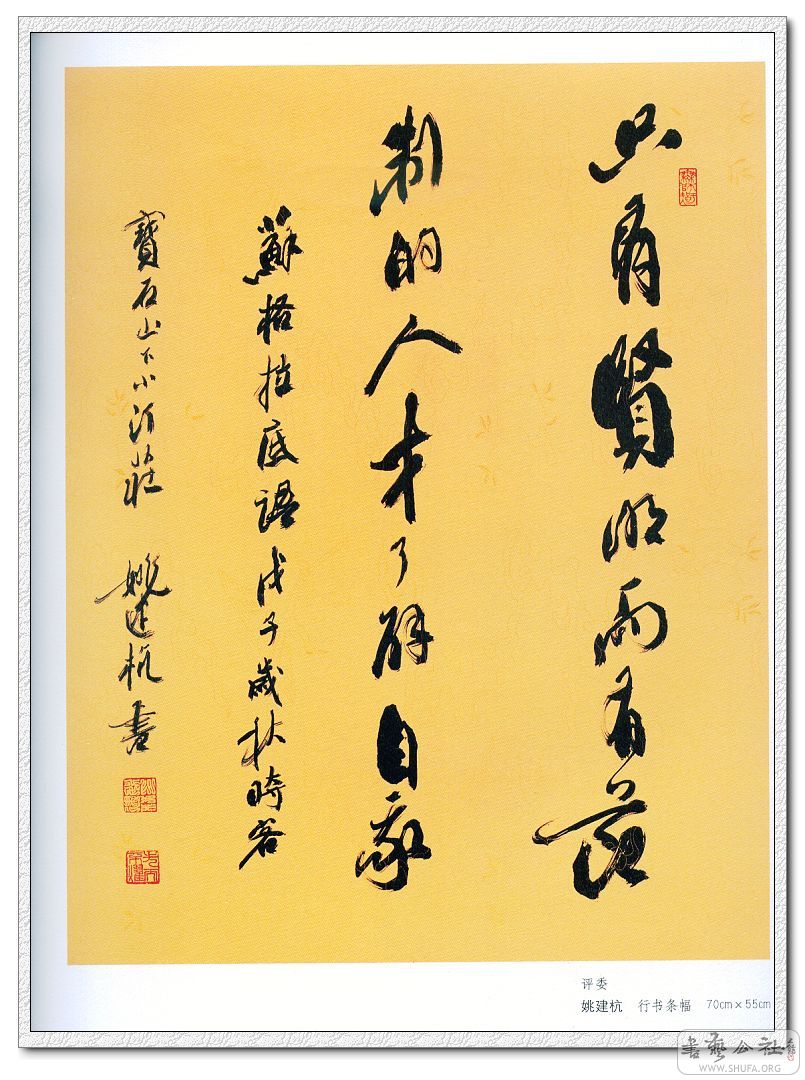 只有贤明而有节
制的人才了解自我
蘇格拉底語戊子歲秋時客
寶石山下小河莊 姚建杭書
评委
姚建杭 行书条幅 70cm×55cm
書藝公社
WWW.SHUFA.ORG